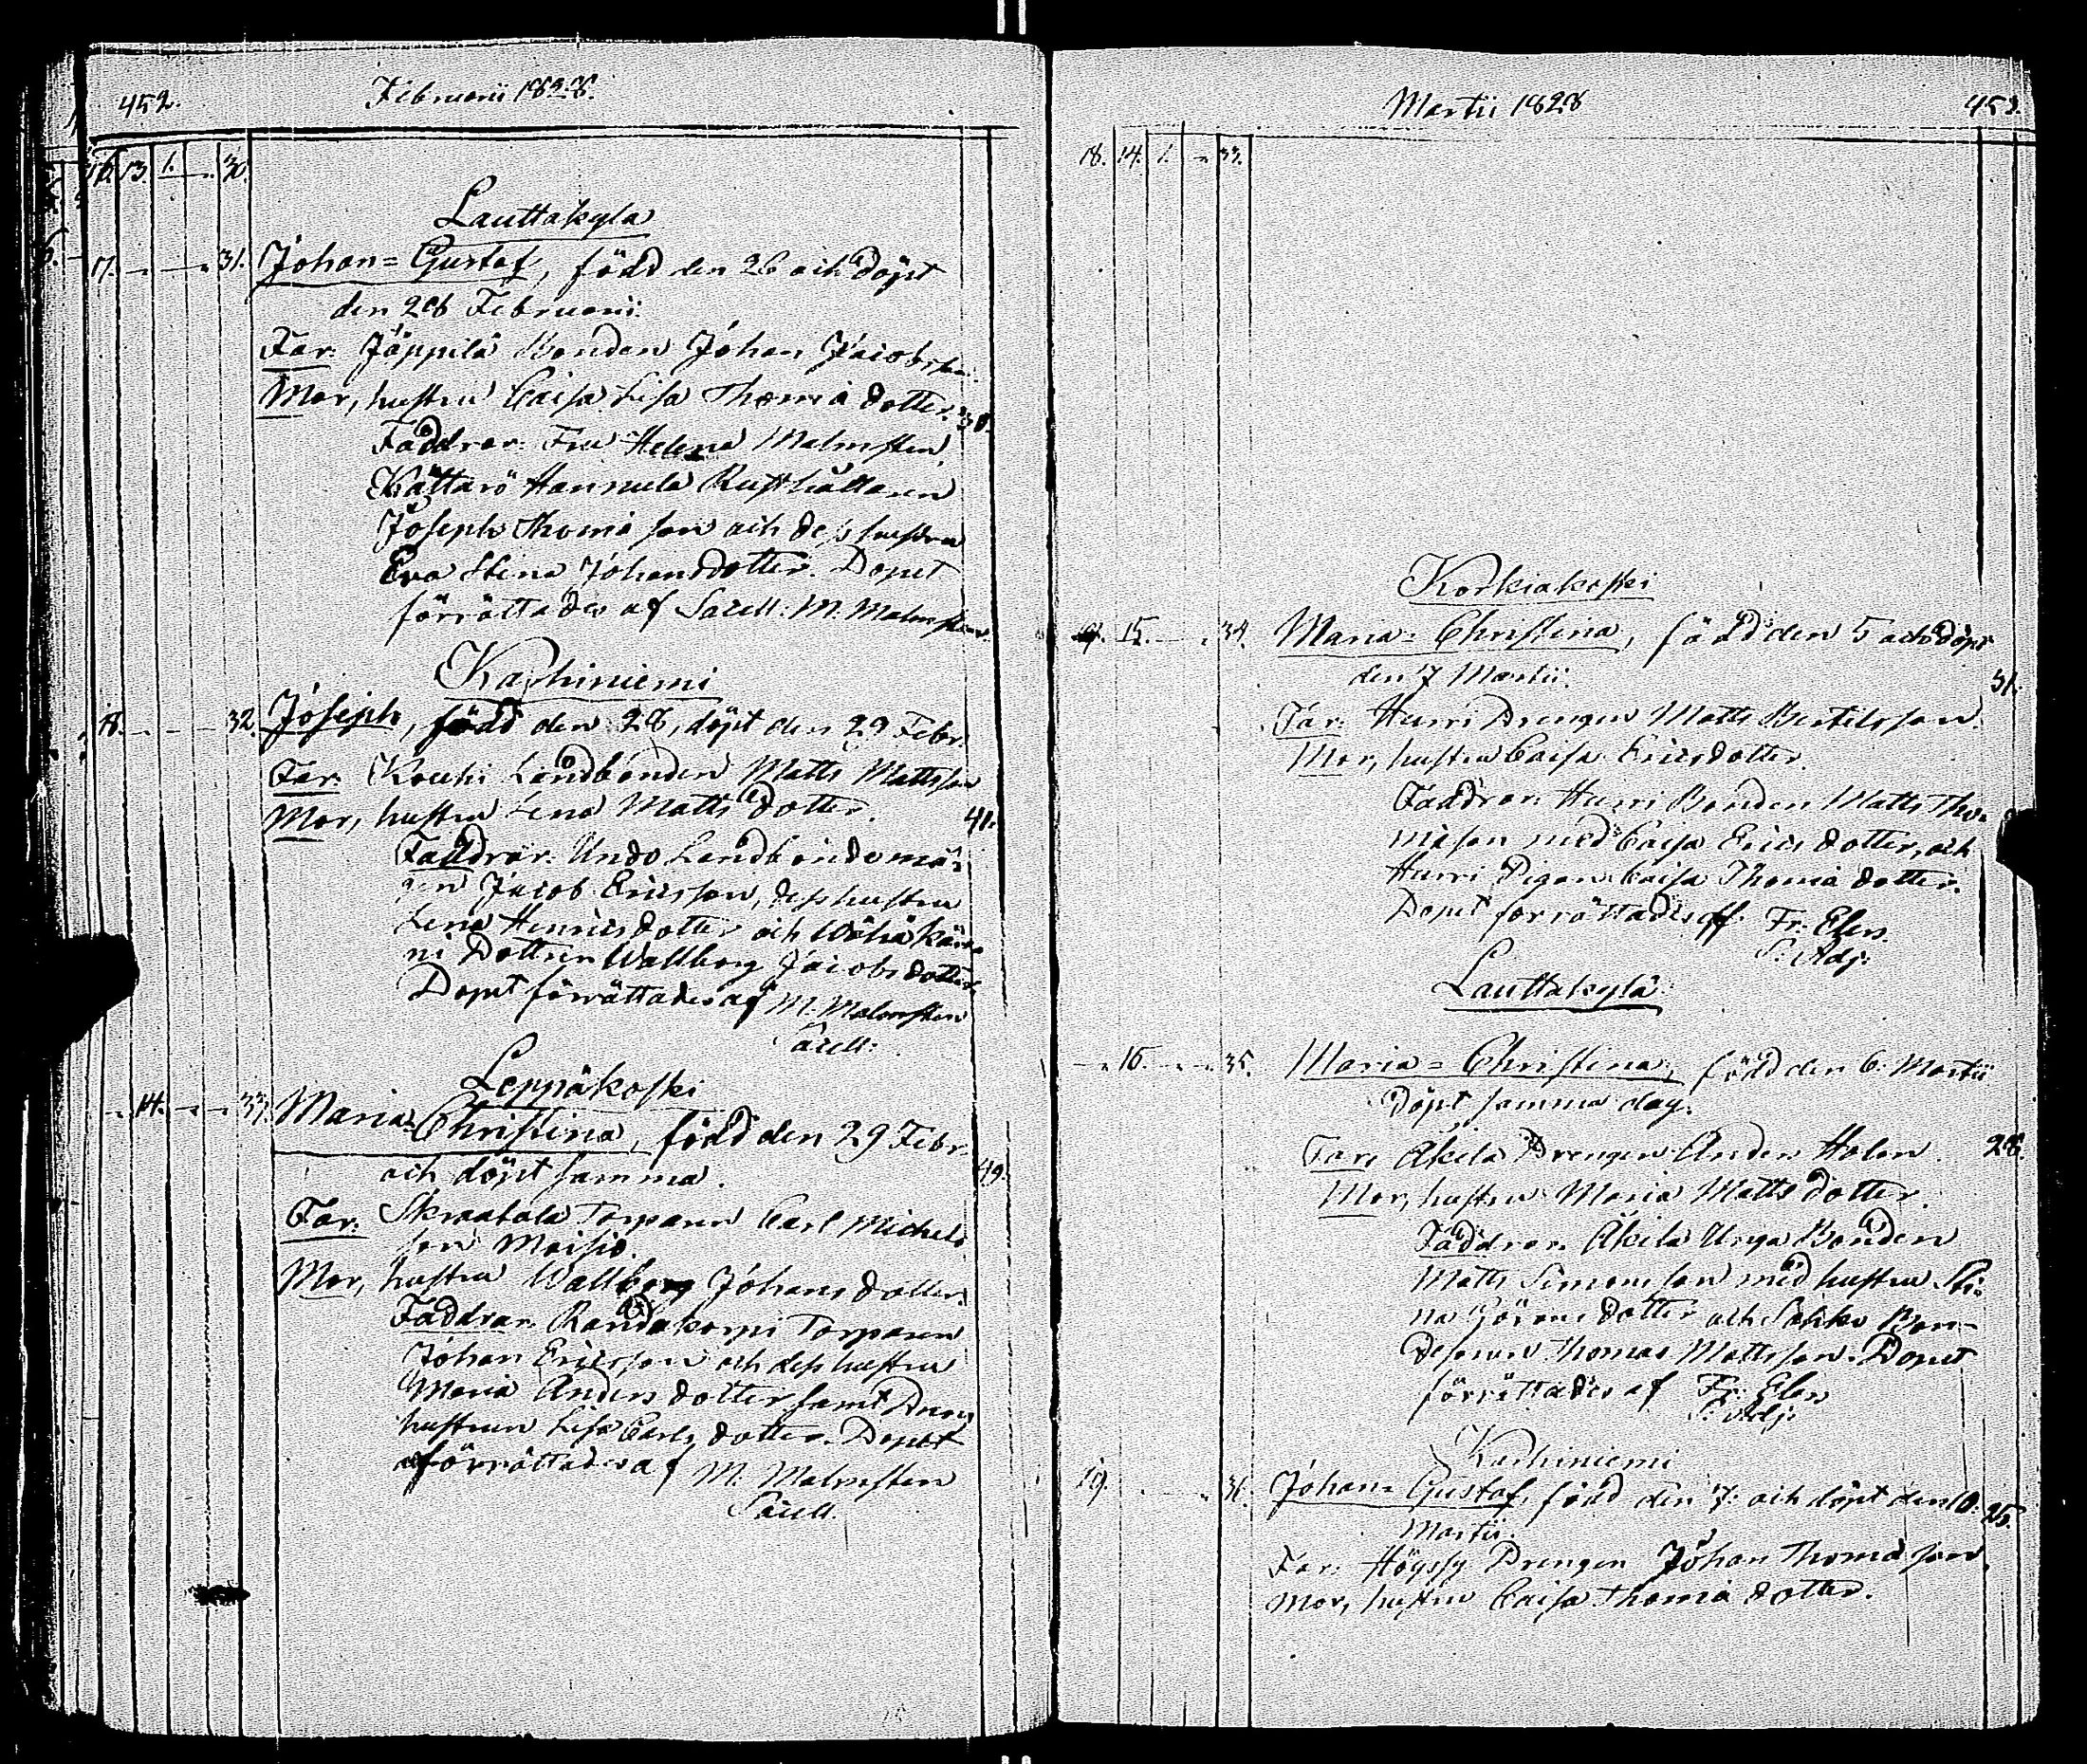 452. Februarii 1828.
16. 13. 1. 30.
Lauttakyla
17. 31. Johan=Gustaf, född den 26 och döpt
den 28 Februarii.
Far: Jöppilä Bonden Johan Jacobsson
Mor, hustru Caisa Lisa Thomæ dotter. 30.
Faddrar: Fru Helena Malmsten,
Kättärö Hannula Rusthållaren
Joseph Thomæ son och dess hustru
Eva Stina Johansdotter. Dopet
förrättades af Sacell: M. Malmsten.
Karhiniemi
18. 32. Joseph, född den 28, döpt den 29 Febr.
Far: Kouhi Landbonden Matts Mattsson
Mor, hustru Lena Matts dotter. 41.
Faddrar: Undo Landbonde må-
gen Jacob Ericsson, dess hustru
Lena Henricsdotter och Wähä
ni Dottren Wallborg Jacobsdotter.
Dopet förrättades af M. Malmsten
Sacell:
Leppäkoski
14. 33. Maria=Christina, född den 29 Febr.
och döpt samma. 49.
Far: Skraatala Torparen Carl Michels
son Moisio.
Mor, hustru Wallborg Johans dotter.
Faddrar: Randakorpi Torparen
Johan Ericsson och dess hustru
Maria Anders dotter samt Dreng
hustrun Lisa Carls dotter. Dopet
förrättades af M. Malmsten
Sacell.
Martii 1828 453.
18. 14. 1. 33.
Korkiakoski
15. 34. Maria=Christina, född den 5 och döpt
den 7 Martii. 31.
Far: Hurri Drengen Matts Bertilsson.
Mor, hustru Caisa Ericsdotter.
Faddrar: Hurri Bonden Matts Tho-
mæson med Caisa Erics dotter, och
Hurri Pigan Caisa Thomæ dotter.
Dopet förrättades af Fr: Elers.
S. Adj:
Lauttakylä
16. 35. Maria=Christina, född den 6. Martii
döpt samma dag.
Far: Äkila Drengen Anders Holen 28.
Mor, hustru Maria Matts dotter.
Faddrar: Äkila Unga Bonden
Matts Simonsson med hustru Sti-
na Görans dotter och Bon-
desonen Thomas Mattsson. Dopet
förrättades af Fr: Elers
S. Adj:
Karhiniemi
19. 36. Johan=Gustaf, född den 7: och döpt den 10: 25.
Martii.
Far: Höyssy Drengen Johan Thomæ son
Mor, hustru Caisa Thomæ dotter.